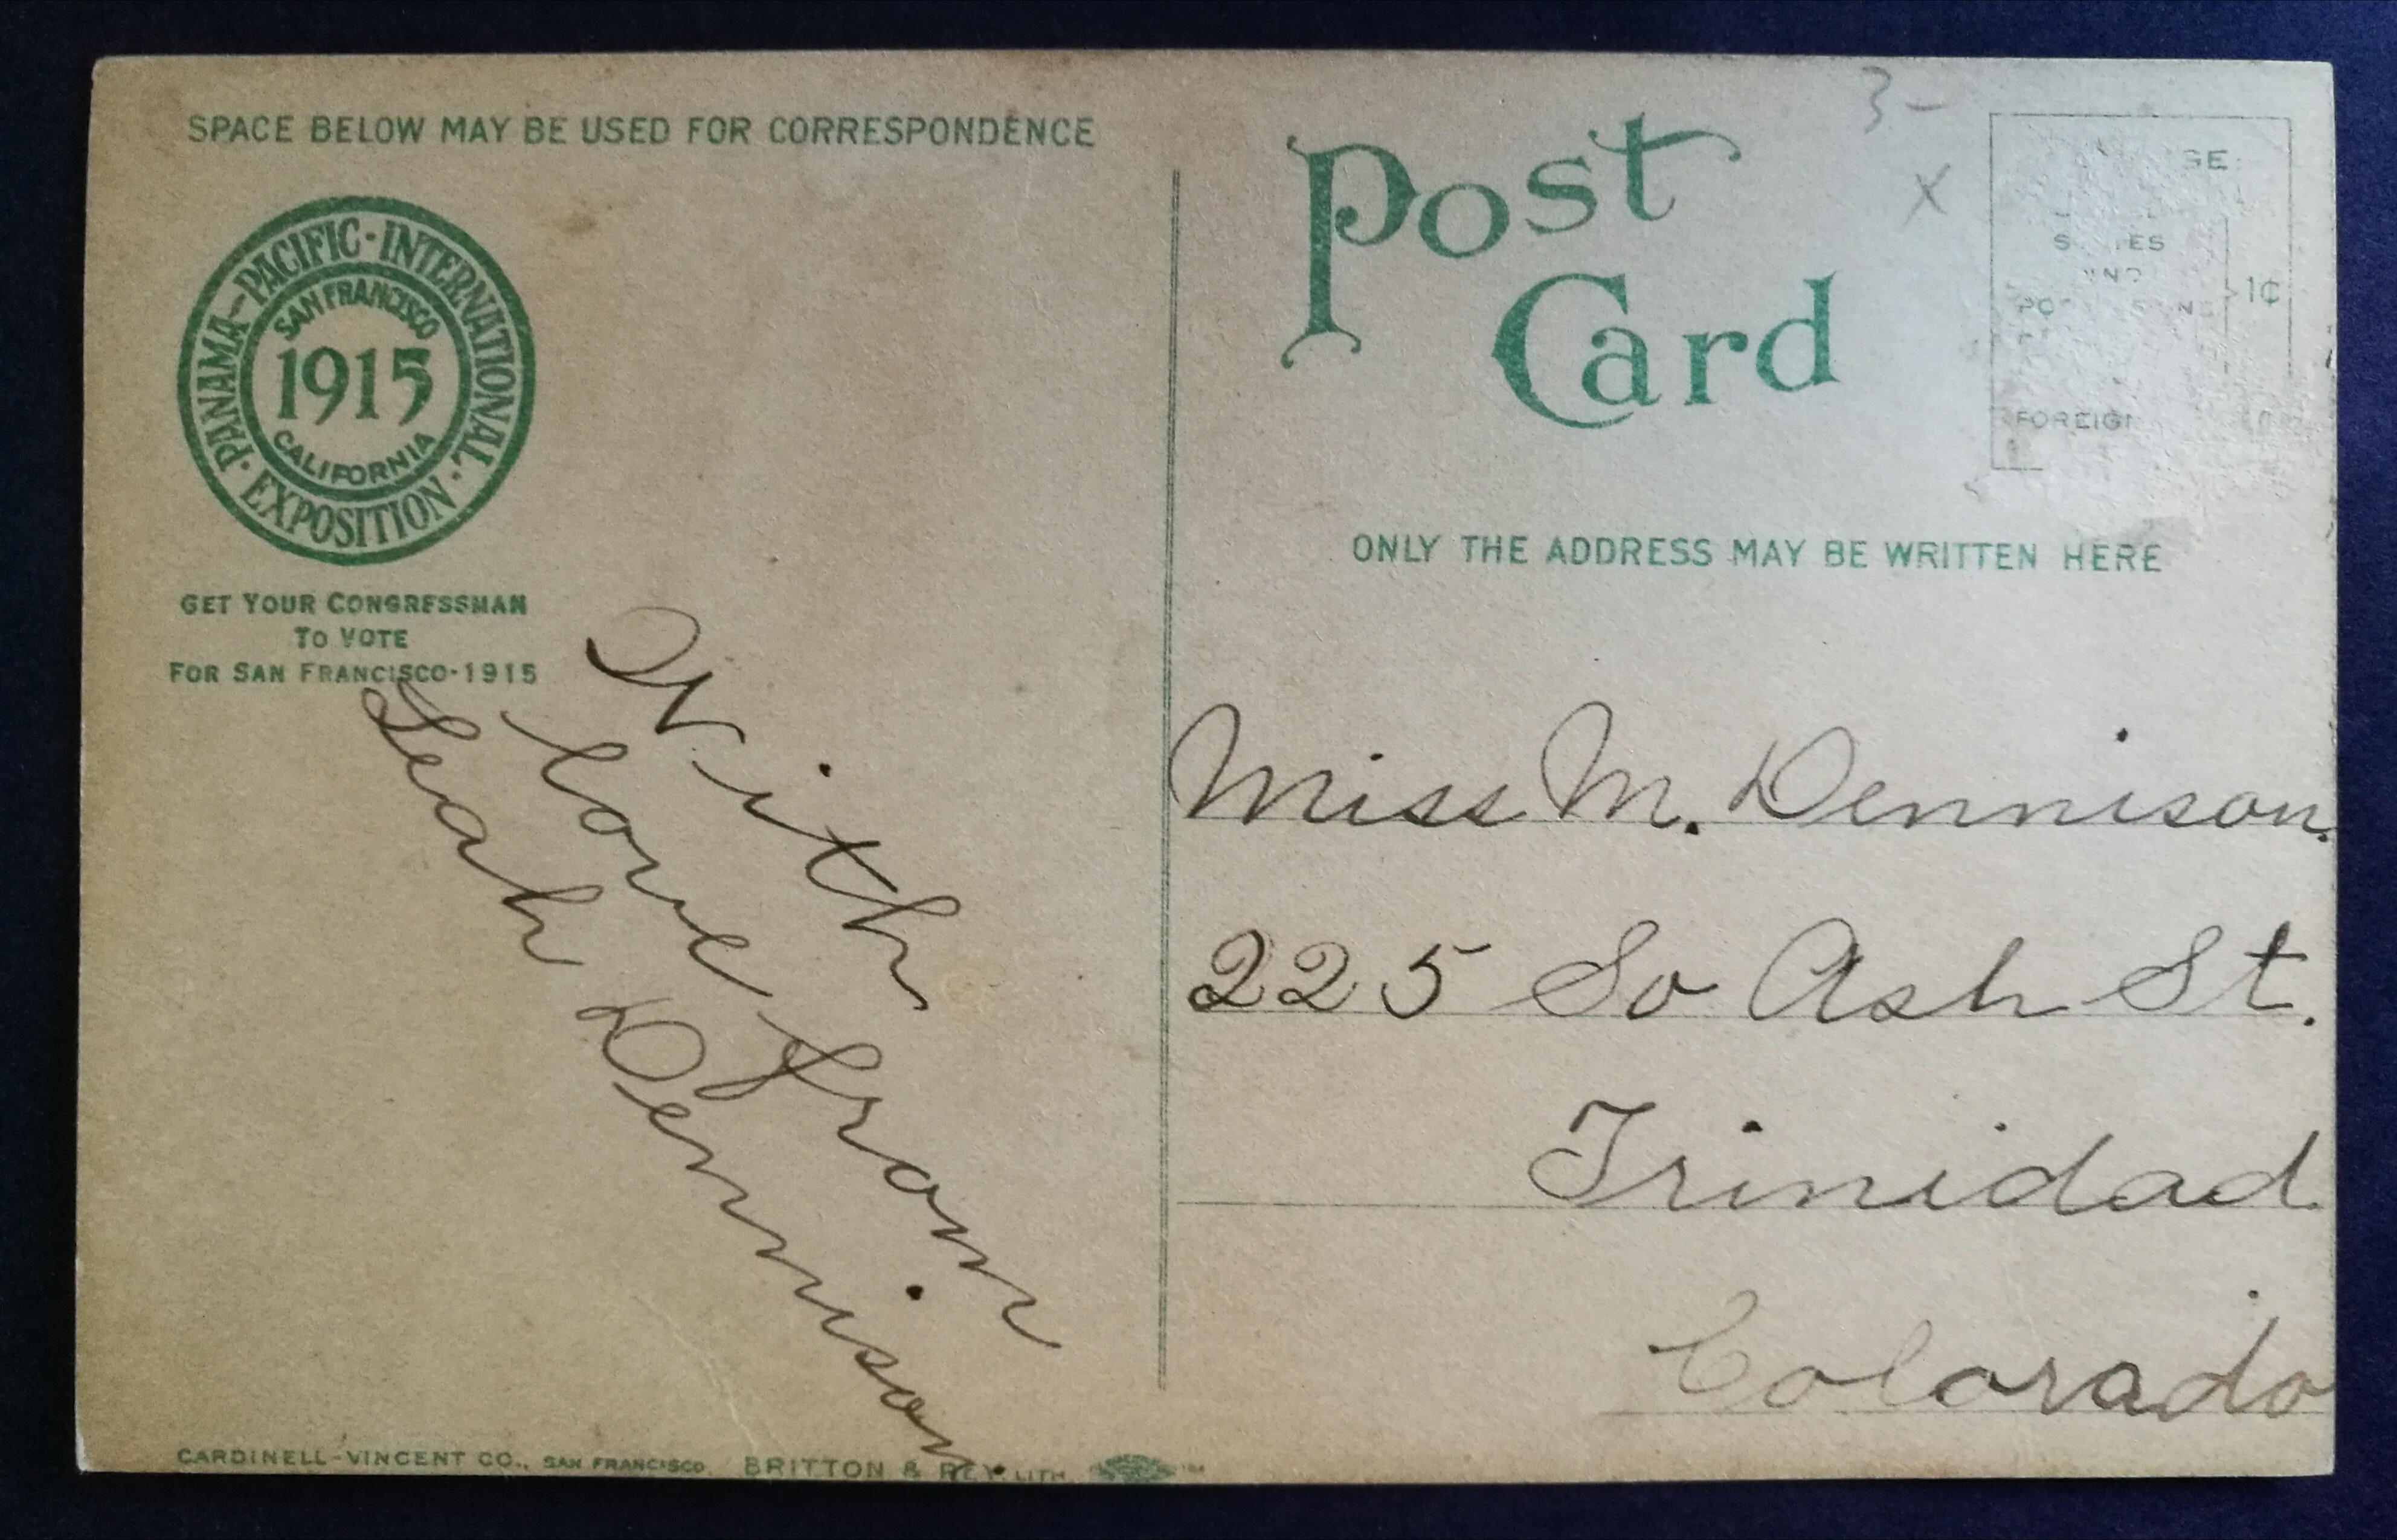 SPACE BELOW MAY BE USED FOR CORRESPONDENCE
PANAMA-PACIFIC-INTERNATIONAL · EXPOSITION ·
SAN FRANCISCO
1915
CALIFORNIA
GET YOUR CONGRESSMAN
TO VOTE
FOR SAN FRANCISCO-1915
With
love from
Leah Dennison
CARDINELL-VINCENT CO., SAN FRANCISCO. BRITTON & REY LITH.
3-
X
Post
Card
1¢
FOREIGN
ONLY THE ADDRESS MAY BE WRITTEN HERE
Miss M. Dennison.
225 So Ash St.
Trinidad
Colorado